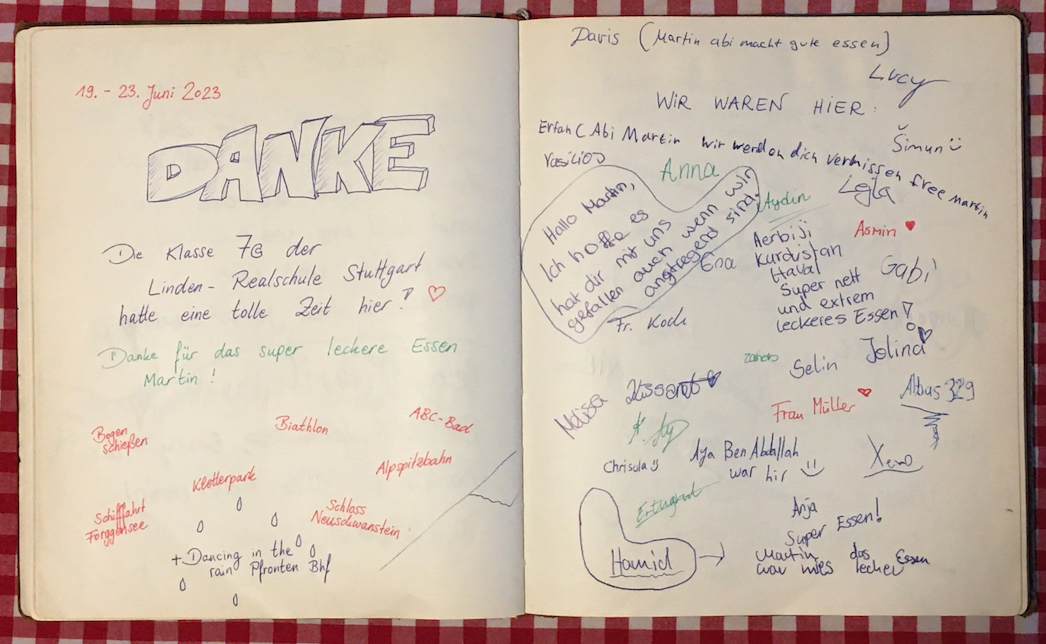 19. - 23. Juni 2023
DANKE
Die Klasse 7G der
Linden - Realschule Stuttgart
hatte eine tolle Zeit hier! ♡
Danke für das super leckere Essen
Martin!
Bogen
schießen
Biathlon
ABC-Bad
Kletterpark
Alpspitzbahn
Schifffahrt
Forggensee
Schloss
Neuschwanstein
+ Dancing in the
rain Pfronten Bhf
Davis (Martin abi macht gute essen)
Lucy
WIR WAREN HIER:
Erfan ( Abi Martin wir werden dich vermissen free Martin
Šimun
Vasilios
Anna
Lejla
Hallo Martin,
Ich hoffe es
hat dir mit uns
gefallen auch wenn wir
angtregend sind.
Aydin
Asmin ♥
Ena
Aerbiji
Kurdistan
Haval
Super nett
und extrem
leckeres Essen!
Gabi
Fr. Koch
Selin
Jolina
Melisa
Frau Müller ♡
Chrisula
Aya Ben Abdallah
war hir
Xeno
Ertugrul
Anja
Super Essen!
Hamid →
Martin das Essen
war mies lecker